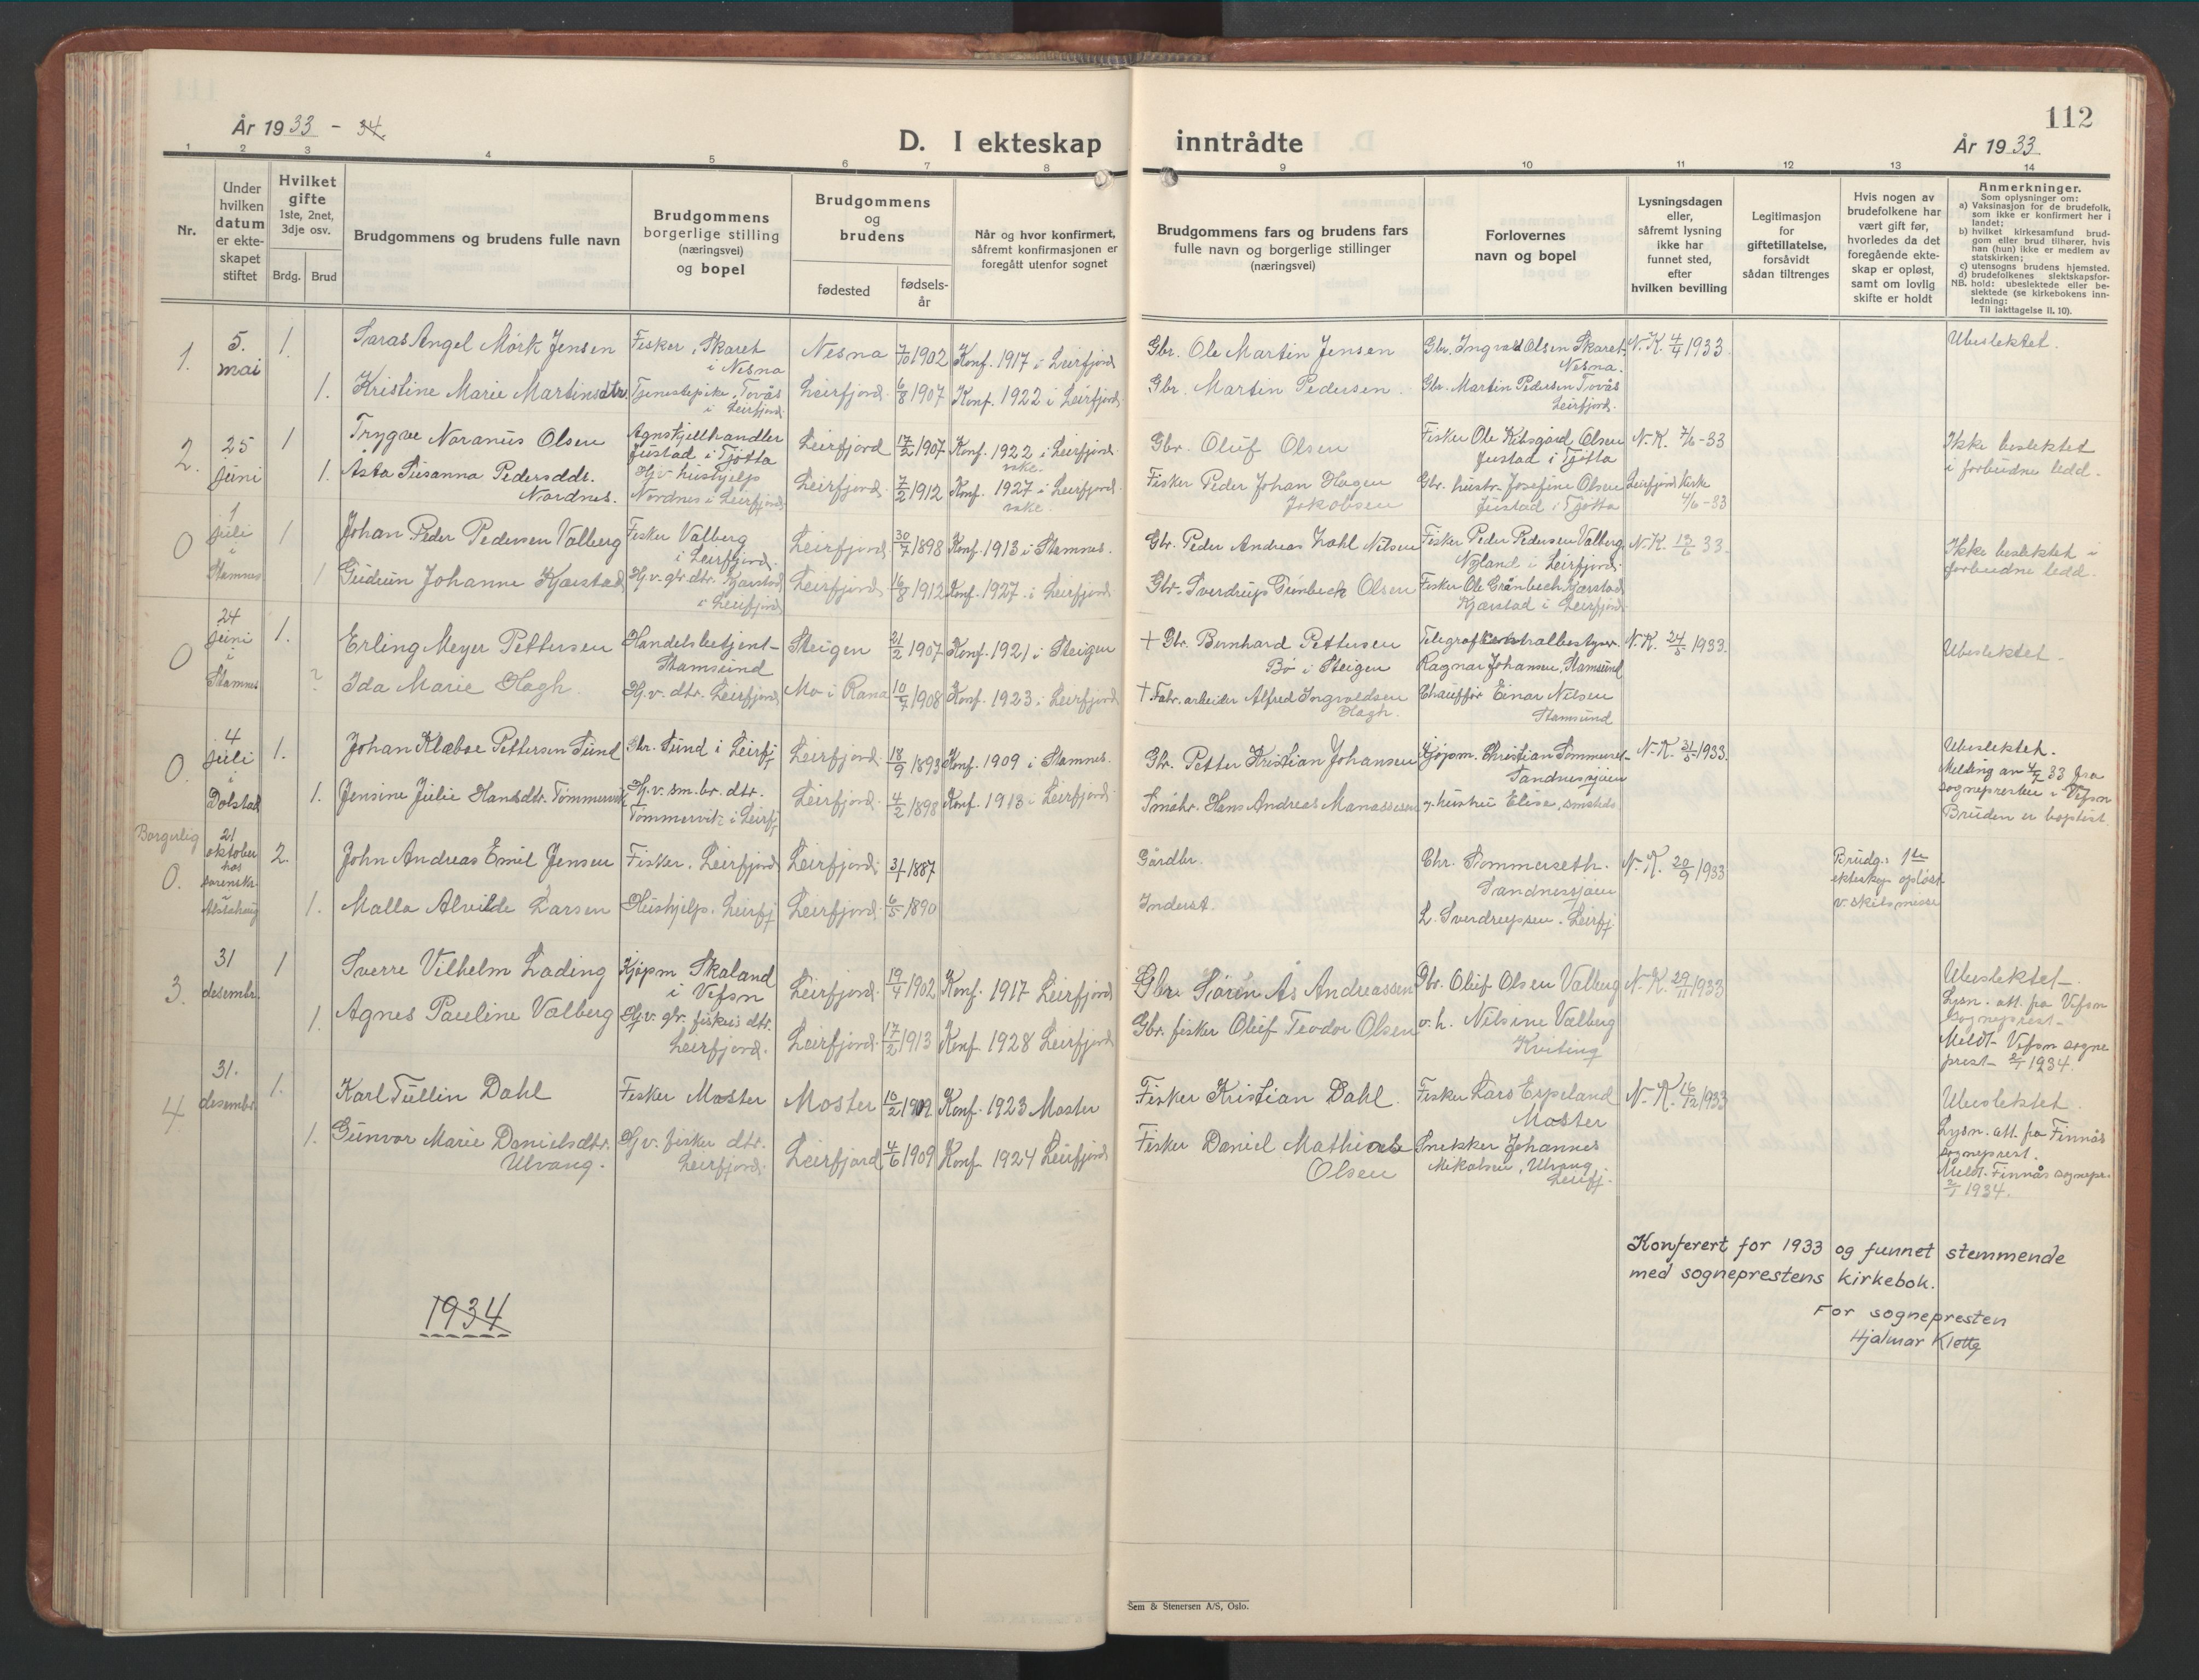 112
År 1933 - 34.
D. I ekteskap inntrådte
År 1933
1 2 3 4 5 6 7 8 9 10 11 12 13 14
Nr.
Under hvilken datum er ekteskapet stiftet
Hvilket gifte 1ste, 2net, 3dje osv.
Brdg. Brud
Brudgommens og brudens fulle navn
Brudgommens borgerlige stilling (næringsvei) og bopel
Brudgommens og brudens
fødested
fødselsår
Når og hvor konfirmert, såfremt konfirmasjonen er foregått utenfor sognet
Brudgommens fars og brudens fars fulle navn og borgerlige stillinger (næringsvei)
Forlovernes navn og bopel
Lysningsdagen eller, såfremt lysning ikke har funnet sted, efter hvilken bevilling
Legitimasjon for giftetillatelse, forsåvidt sådan tiltrenges
Hvis nogen av brudefolkene har vært gift før, hvorledes da det foregående ekteskap er opløst, samt om lovlig skifte er holdt
Anmerkninger.
Som oplysninger om:
a) Vaksinasjon for de brudefolk, som ikke er konfirmert her i landet;
b) hvilket kirkesamfund brudgom eller brud tilhører, hvis han (hun) ikke er medlem av statskirken;
c) utensogns brudens hjemsted.
d) brudefolkenes slektskapsforhold: ubeslektede eller beslektede (se kirkebokens innledning:
NB.
Til iakttagelse II. 10).
1. 5. mai 1. Saras Angel Mørk Jensen Fisker, Skaret i Nesna Nesna 7/10 1902 Konf. 1917 i Leirfjord Gbr. Ole Martin Jensen Gbr. Ingvald Olsen Skaret Nesna. N.K. 4/4 1933. Ubeslektet.
1. Kristine Marie Martinsdtr. Tjenestepike, Tovås i Leirfjord. Leirfjord. 6/8 1907 Konf. 1922 i Leirfjord. Gbr. Martin Pedersen. Gbr. Martin Pedersen Tovås Leirfjord.
2. 25 juni 1 Trygve Noranus Olsen Agnskjellhandler Justad i Tjøtta Leirfjord 17/2 1907 Konf. 1922 i Leirfjord. Gbr. Oluf Olsen Fisker Ole Olsen Justad i Tjøtta N.K. 7/6-33 Ikke beslektet i forbudne ledd.
1. Asta Susanna Pedersdtr. Nordnes. Hj.v. hushjelp Nordnes i Leirfjord Leirfjord. 7/2 1912 Konf. 1927 i Leirfjord. Fisker Peder Johan Hagen Jakobsen Gbr. hustr. Josefine Olsen Justad i Tjøtta Leirfjord Kirke 4/6-33
0 1 juli i Stamnes 1 Johan Peder Pedersen Valberg Fisker Valberg i Leirfjord. Leirfjord 30/7 1898 Konf. 1913 i Stamnes. Gbr. Peder Andreas Zahl Nilsen Fisker Peder Pedersen Valberg Nyland i Leirfjord. N.K. 13/6 33. Ikke beslektet i forbudne ledd.
1 Gudrun Johanne Kjærstad Hj.v. gbr. dtr. Kjærstad i Leirfjord Leirfjord 16/8 1912 Konf. 1927 i Leirfjord Gbr. Sverdrup Grønbech Olsen Fisker Ole Grønbech Kjærstad Kjærstad i Leirfjord
0 24 juni i Stamnes 1. Erling Meyer Pettersen Handelsbetjent Stamsund Steigen 21/2 1907 Konf. 1921 i Steigen † Gbr. Bernhard Pettersen Bø i Steigen Telegrafcentralbestyrer Ragnar Johansen, Stamsund N.K. 24/5 1933. Ubeslektet.
? Ida Marie Hagh. Hj.v. dtr. Leirfjord Mo i Rana 10/7 1908 Konf. 1923 i Leirfjord † Fabr. arbeider Alfred Ingvaldsen Hagh. Chauffør Einar Nilsen Stamsund
0. 4 juli i Dolstad 1. Johan Klæboe Pettersen Sund Gbr. Sund i Leirfj. Leirfjord. 18/9 1893 Konf. 1909 i Stamnes. Gbr. Petter Kristian Johansen Kjøpm. Christian Sommerset Sandnessjøen N.K. 31/5 1933. Ubeslektet. Melding av 4/7 33 fra sognepresten i Vefsn Bruden er baptist.
1. Jensine Julie Hansdtr. Tømmervik Hj.v. sm.br. dtr. Tømmervik i Leirfj. Leirfjord. 4/2 1898 Konf. 1913 i Leirfjord. Småbr. Hans Andreas Manassesen og hustru Elise, smsteds
Borgerlig 0. 21 oktober hos sorenskr. i Alstahaug 2. John Andreas Emil Jensen Fisker. Leirfjord Leirfjord. 3/1 1887 Gårdbr. Chr. Sommerseth. Sandnessjøen N.K. 20/9 1933 Brudg.s 1ste ekteskap opløst v. skilsmisse
1. Malla Alvilde Larsen Hushjelp. Leirfj. Leirfjord. 6/5 1890 Inderst. L. Sverdrupsen. Leirfj.
3. 31 desembr. 1 Sverre Vilhelm Lading Kjøpm Skaland i Vefsn Leirfjord. 19/4 1902 Konf. 1917 Leirfjord Gbr. Søren As Andreassen Gbr. Oluf Olsen Valberg N.K. 29/11 1933 Ubeslektet. Lysn. att. fra Vefsn sogneprest. Meldt Vefsn sogneprest 2/1 1934.
1. Agnes Pauline Valberg Hj.v. gbr. fiskers dtr. Leirfjord. Leirfjord. 17/2 1913 Konf. 1928 Leirfjord Gbr. fisker Oluf Teodor Olsen o. h. Nilsine Valberg
4. 31. desembr. 1. Karl Tullin Dahl Fisker Moster Moster 10/2 1909. Konf. 1923 Moster Fisker Kristian Dahl. Fisker Lars Espeland Moster N.K. 16/12 1933 Ubeslektet. Lysn. att. fra Finnås sogneprest. Meldt Finnås sognepr. 2/1 1934.
1. Gunvor Marie Danielsdtr. Ulvang. Hj.v. fisker dtr. Leirfjord. Leirfjord 4/6 1909 Konf. 1924 Leirfjord Fisker Daniel Mathias Olsen Snekker Johannes Mikalsen, Ulvang Leirfj.
Konferert for 1933 og funnet stemmende
med sogneprestens kirkebok.
For sognepresten
Hjalmar Klette
1934
Sem & Stenersen A/S, Oslo.